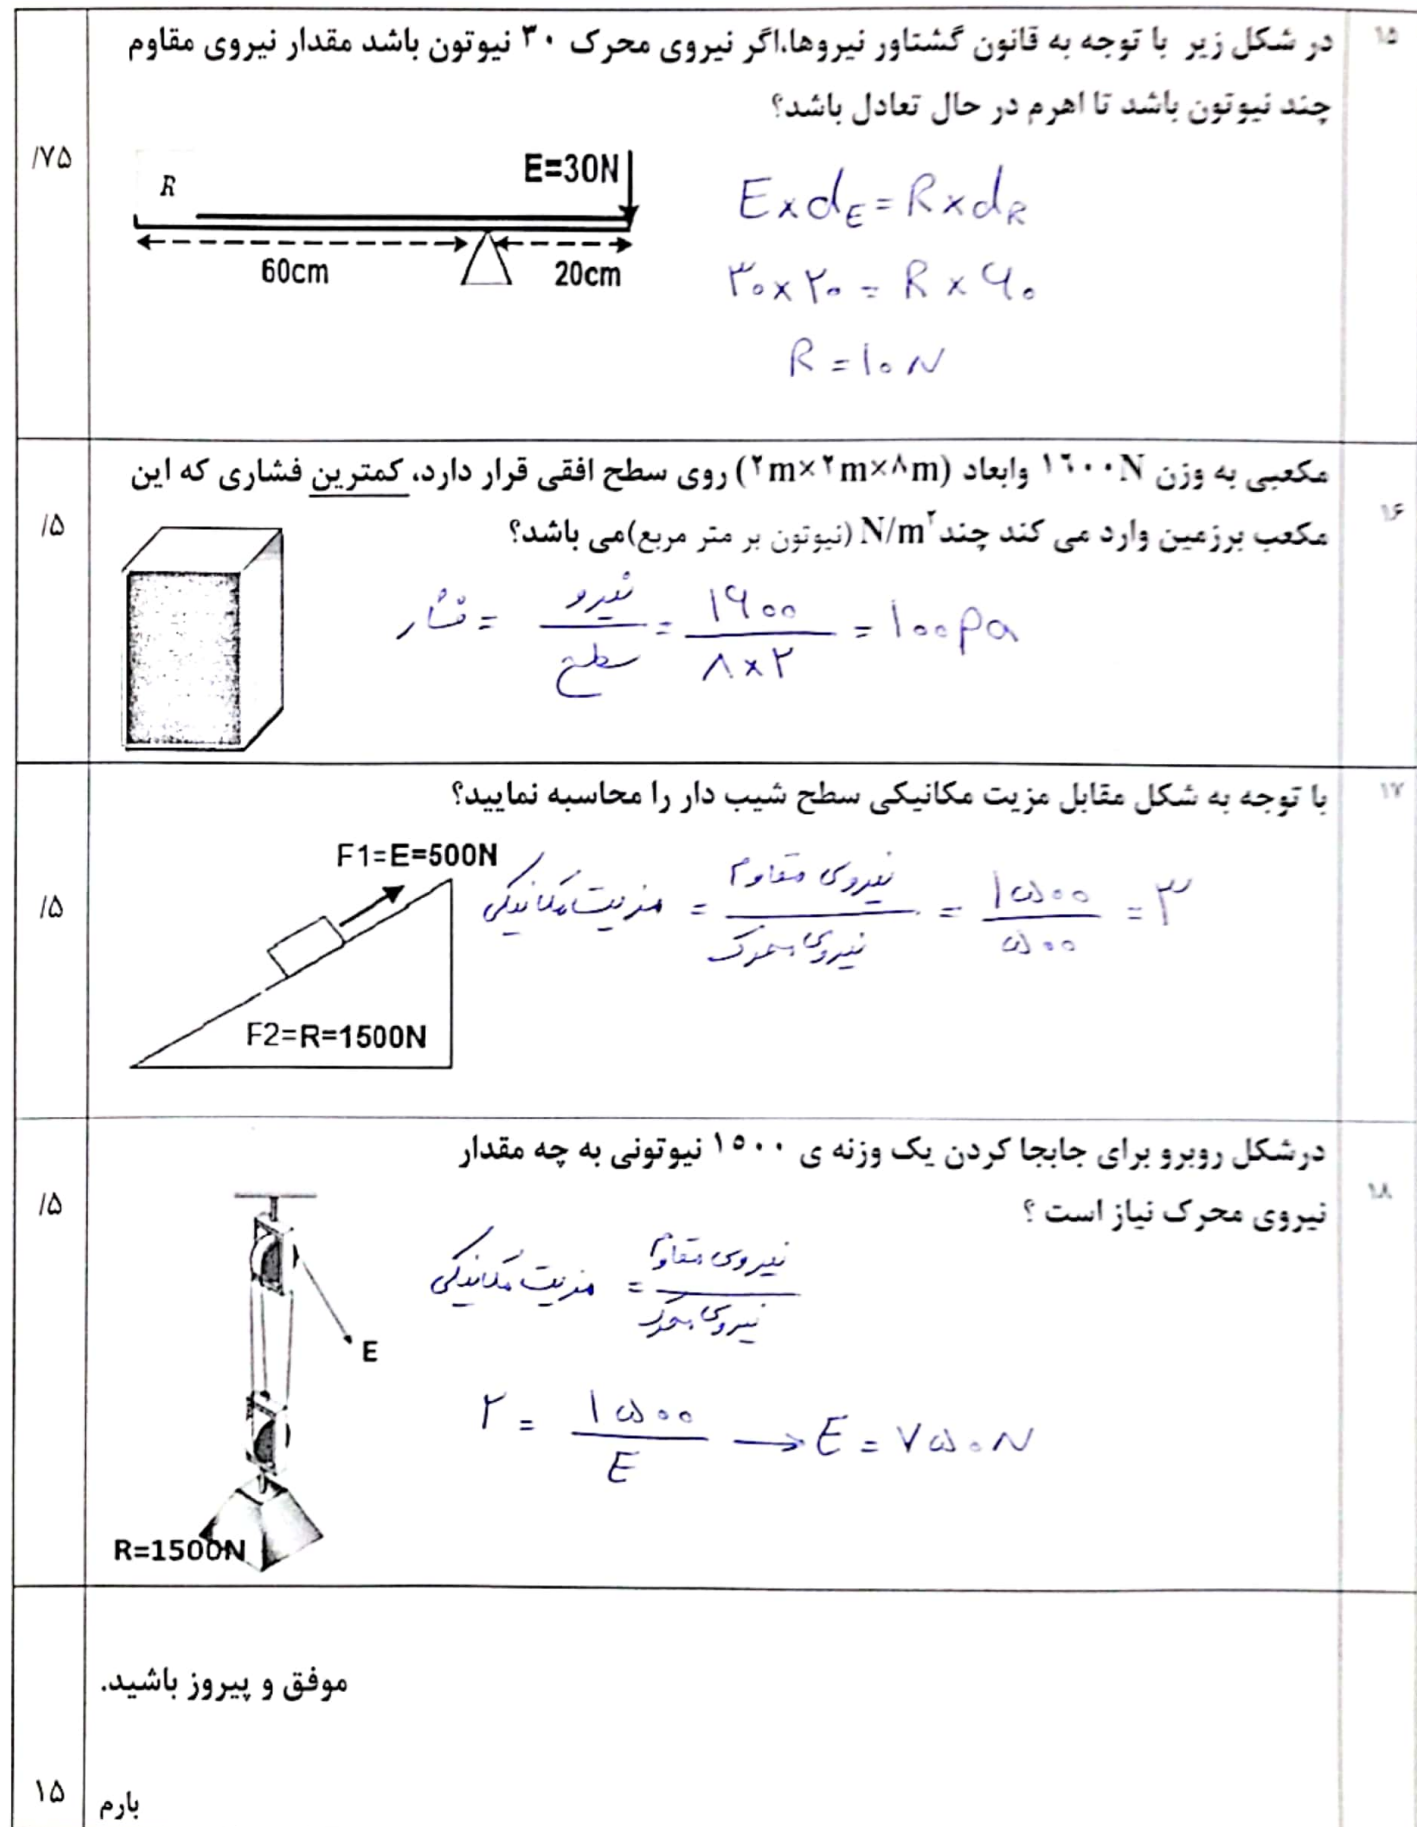 ۱۵
در شکل زیر با توجه به قانون گشتاور نیروها،اگر نیروی محرک ۳۰ نیوتون باشد مقدار نیروی مقاوم
چند نیوتون باشد تا اهرم در حال تعادل باشد؟
/۷۵
R
E=30N
60cm
20cm
E × dE = R × dR
۳۰ × ۲۰ = R × ۶۰
R = ۱۰ N
۱۶
مکعبی به وزن ۱۶۰۰N وابعاد (۲m×۲m×۸m) روی سطح افقی قرار دارد، کمترین فشاری که این
مکعب برزمین وارد می کند چند N/m۲ (نیوتون بر متر مربع)می باشد؟
/۵
فشار = نیرو / سطح = ۱۶۰۰ / ۸×۲ = ۱۰۰ pa
۱۷
با توجه به شکل مقابل مزیت مکانیکی سطح شیب دار را محاسبه نمایید؟
/۵
F1=E=500N
F2=R=1500N
مزیت مکانیکی = نیروی مقاوم / نیروی محرک = ۱۵۰۰ / ۵۰۰ = ۳
۱۸
درشکل روبرو برای جابجا کردن یک وزنه ی ۱۵۰۰ نیوتونی به چه مقدار
نیروی محرک نیاز است ؟
/۵
E
R=1500N
مزیت مکانیکی = نیروی مقاوم / نیروی محرک
۲ = ۱۵۰۰ / E → E = ۷۵۰ N
موفق و پیروز باشید.
۱۵
بارم